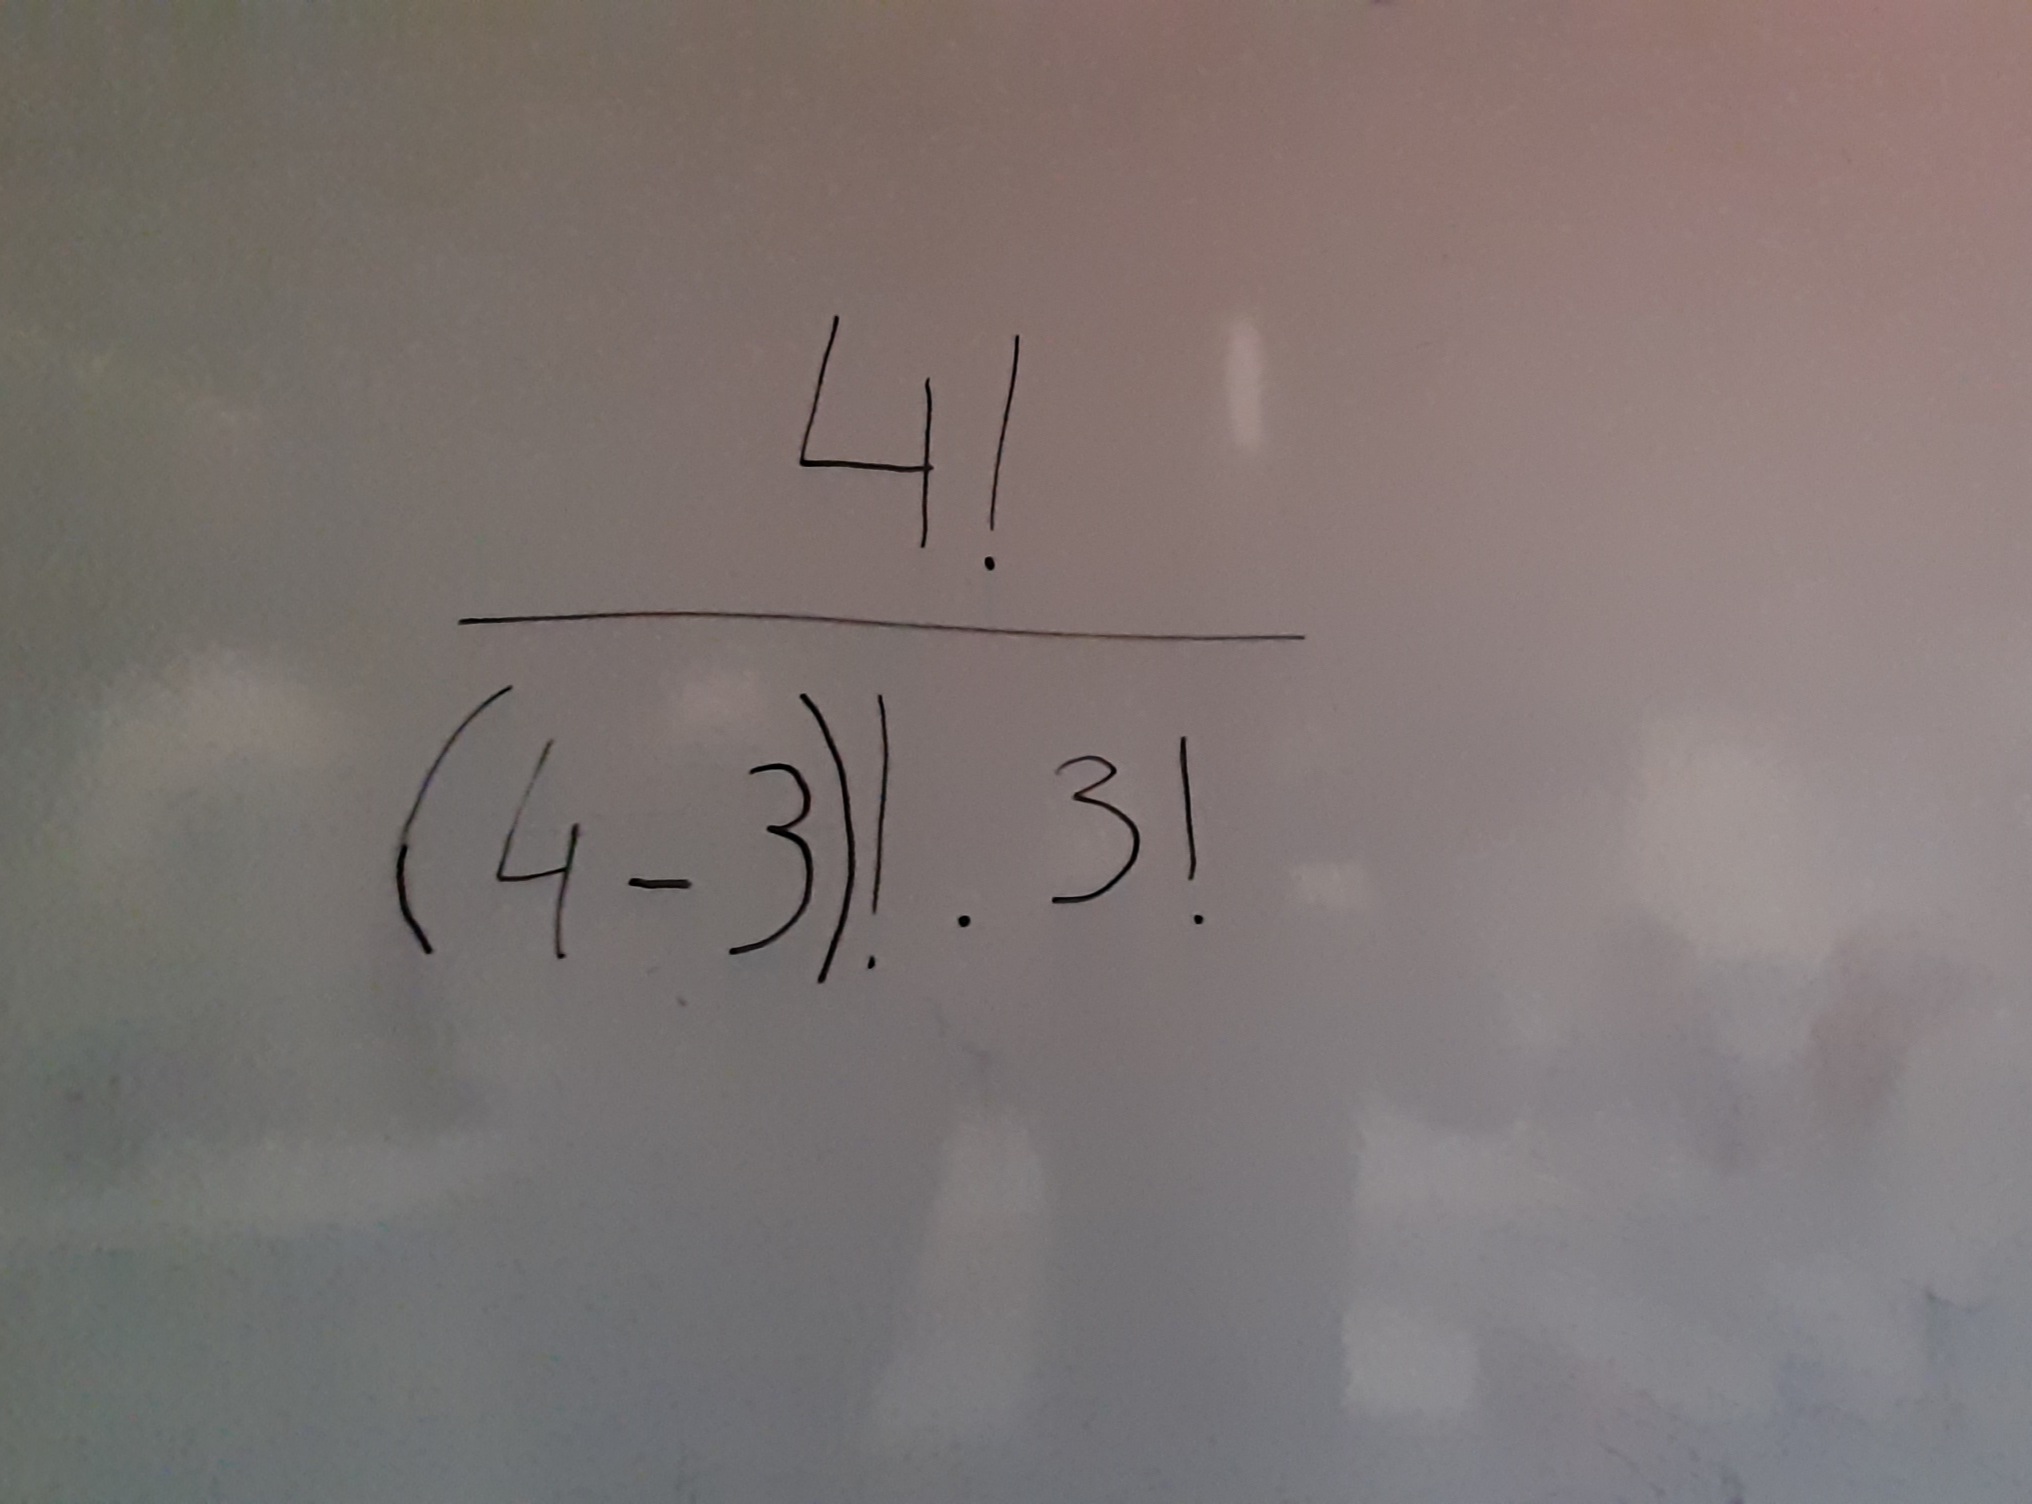 4!
(4-3)! . 3!